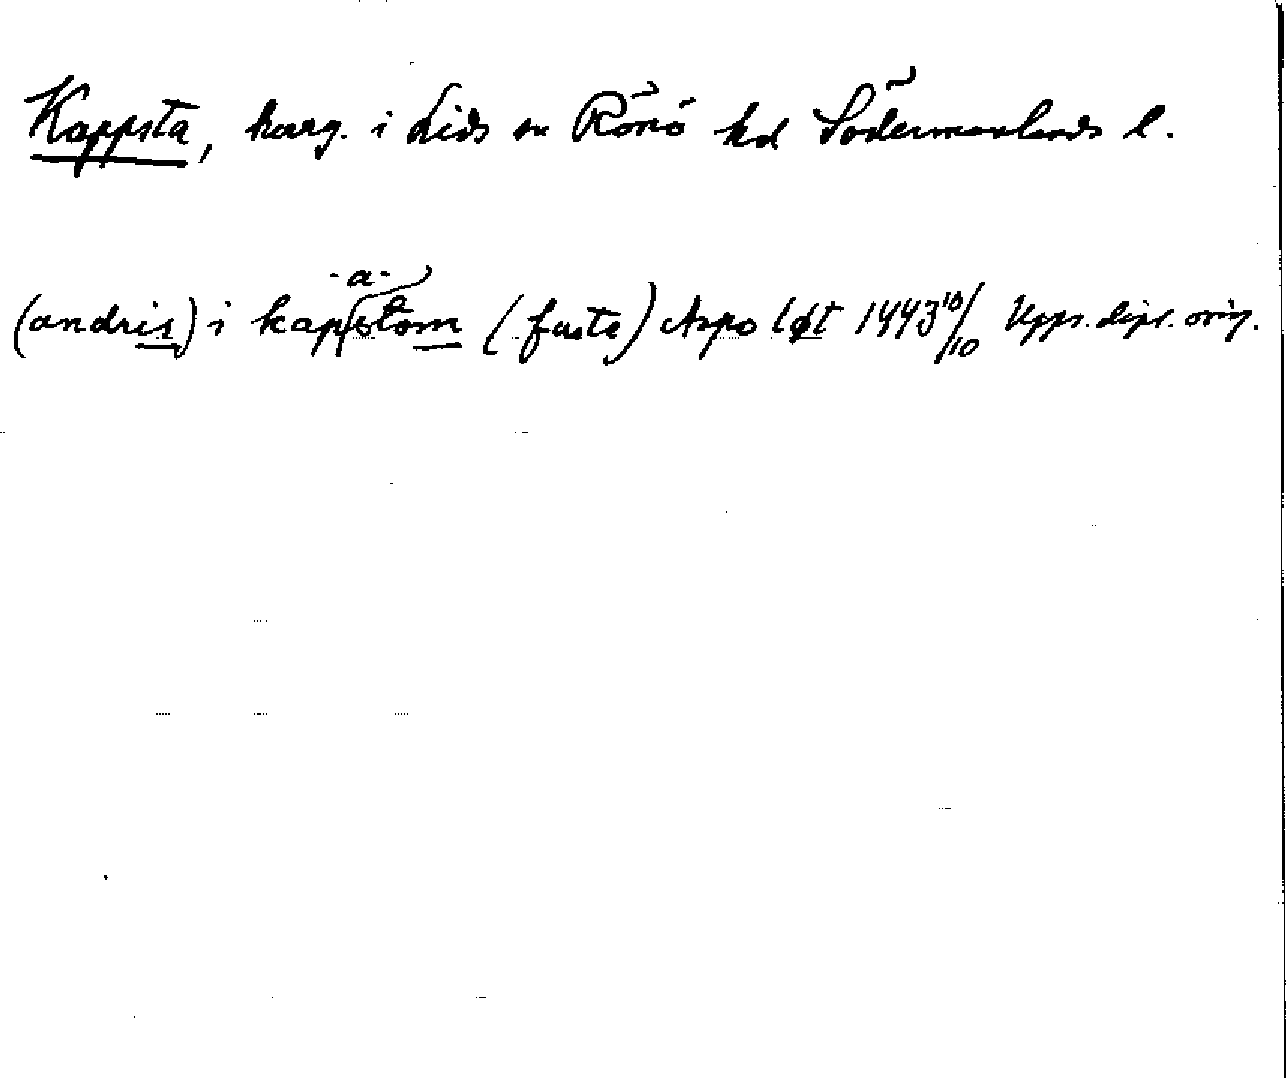 Kappsta, herrg. i Lids sn Rönö hd Södermanlands l.
(andris) i kapp-a-stom (faste) Aspo løt 1443 10/10 Upps. dipl. orig.